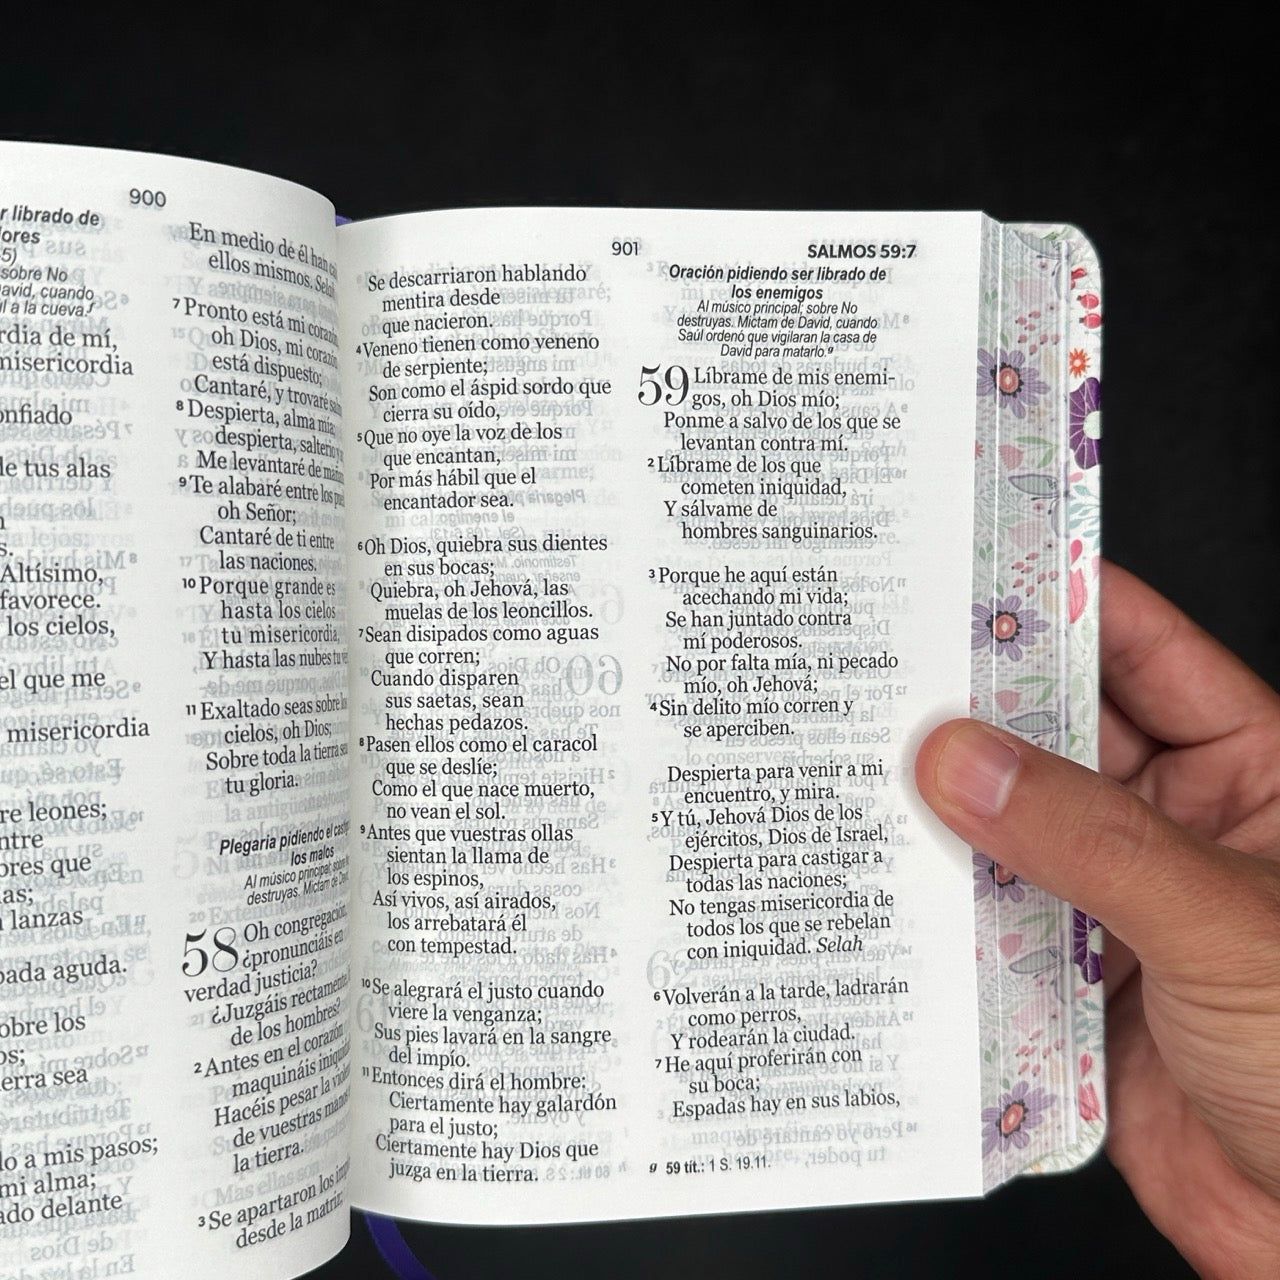 900
r librado de
lores
5)
sobre No
avid, cuando
l a la cueva.f
rdia de mí,
misericordia
onfiado
le tus alas
s.
Altísimo,
favorece.
los cielos,
el que me
misericordia
re leones;
ntre
ores que
as;
lanzas
pada aguda.
obre los
os;
erra sea
lo a mis pasos;
mi alma;
ado delante
En medio de él han
ellos mismos. Selah
7 Pronto está mi corazón,
oh Dios, mi corazón
está dispuesto;
Cantaré, y trovaré
8 Despierta, alma mía;
despierta, salterio
Me levantaré de
9 Te alabaré entre los
oh Señor;
Cantaré de ti entre
las naciones.
10 Porque grande es
hasta los cielos
tu misericordia,
Y hasta las nubes tu
11 Exaltado seas sobre los
cielos, oh Dios;
Sobre toda la tierra sea
tu gloria.
Plegaria pidiendo el
los malos
Al músico principal; sobre
destruyas. Mictam de
58 Oh congregación,
¿pronunciáis en
verdad justicia?
¿Juzgáis rectamente,
de los hombres?
2 Antes en el corazón
maquináis
Hacéis pesar la
de vuestras manos
la tierra.
3 Se apartaron los
desde la matriz;
901
SALMOS 59:7
Se descarriaron hablando
mentira desde
que nacieron.
4 Veneno tienen como veneno
de serpiente;
Son como el áspid sordo que
cierra su oído,
5 Que no oye la voz de los
que encantan,
Por más hábil que el
encantador sea.
6 Oh Dios, quiebra sus dientes
en sus bocas;
Quiebra, oh Jehová, las
muelas de los leoncillos.
7 Sean disipados como aguas
que corren;
Cuando disparen
sus saetas, sean
hechas pedazos.
8 Pasen ellos como el caracol
que se deslíe;
Como el que nace muerto,
no vean el sol.
9 Antes que vuestras ollas
sientan la llama de
los espinos,
Así vivos, así airados,
los arrebatará él
con tempestad.
10 Se alegrará el justo cuando
viere la venganza;
Sus pies lavará en la sangre
del impío.
11 Entonces dirá el hombre:
Ciertamente hay galardón
para el justo;
Ciertamente hay Dios que
juzga en la tierra.
Oración pidiendo ser librado de
los enemigos
Al músico principal; sobre No
destruyas. Mictam de David, cuando
Saúl ordenó que vigilaran la casa de
David para matarlo.g
59 Líbrame de mis enemi-
gos, oh Dios mío;
Ponme a salvo de los que se
levantan contra mí.
2 Líbrame de los que
cometen iniquidad,
Y sálvame de
hombres sanguinarios.
3 Porque he aquí están
acechando mi vida;
Se han juntado contra
mí poderosos.
No por falta mía, ni pecado
mío, oh Jehová;
4 Sin delito mío corren y
se aperciben.
Despierta para venir a mi
encuentro, y mira.
5 Y tú, Jehová Dios de los
ejércitos, Dios de Israel,
Despierta para castigar a
todas las naciones;
No tengas misericordia de
todos los que se rebelan
con iniquidad. Selah
6 Volverán a la tarde, ladrarán
como perros,
Y rodearán la ciudad.
7 He aquí proferirán con
su boca;
Espadas hay en sus labios,
g 59 tít.: 1 S. 19.11.